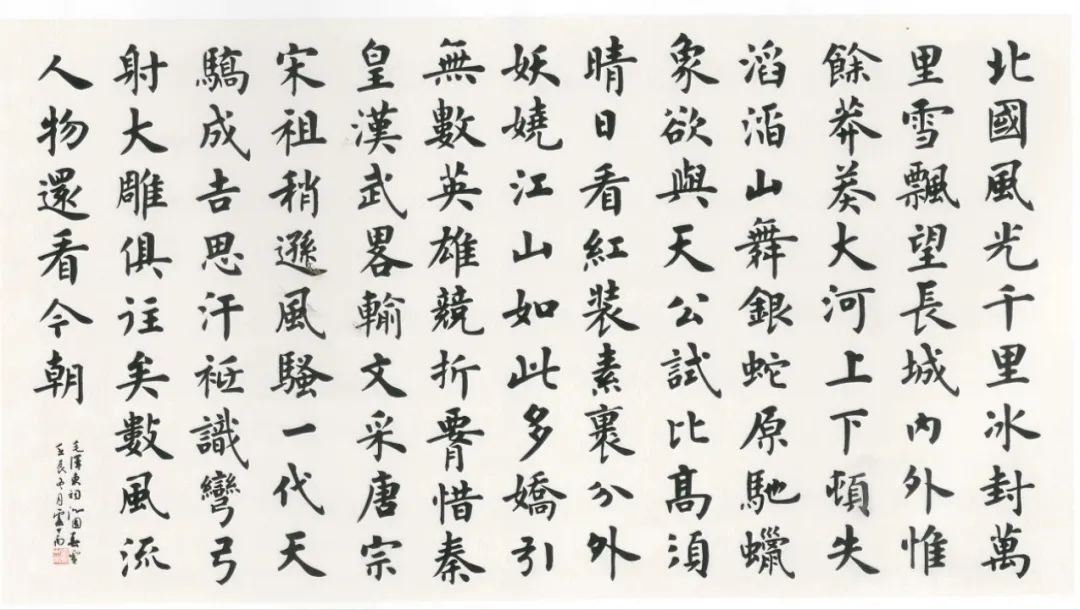 北國風光千里冰封萬
里雪飄望長城內外惟
餘莽莽大河上下頓失
滔滔山舞銀蛇原馳蠟
象欲與天公試比高須
晴日看紅裝素裹分外
妖嬈江山如此多嬌引
無數英雄競折腰惜秦
皇漢武畧輸文采唐宗
宋祖稍遜風騷一代天
驕成吉思汗祗識彎弓
射大雕俱往矣數風流
人物還看今朝
毛澤東詞沁園春雪
壬辰冬月